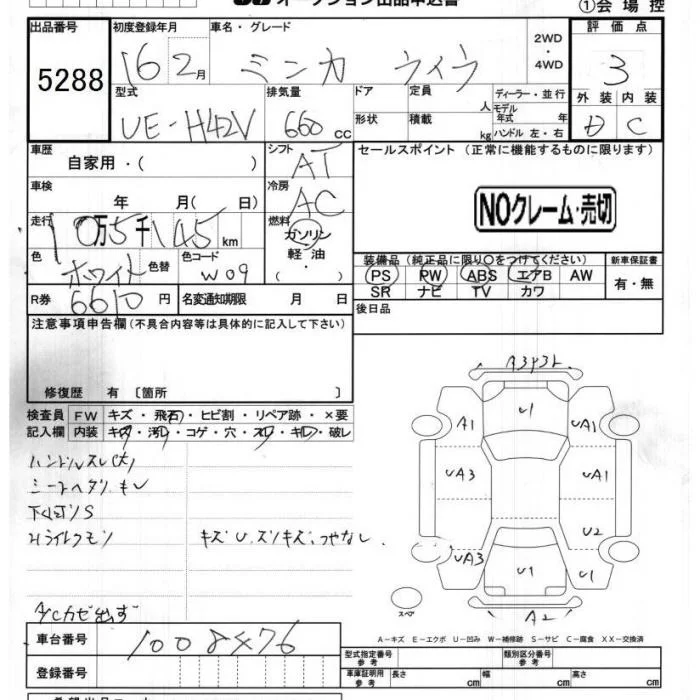 オークション出品申込書
①会場控
出品番号 5288
初度登録年月 16 2月
車名・グレード ミニカ ライラ
2WD・4WD
評価点 3
外装 D 内装 C
型式 UE-H42V
排気量 660 CC
ドア 形状
定員 人
積載 kg
ディーラー・並行
モデル年式 年
ハンドル 左・右
車歴 自家用・( )
シフト AT
セールスポイント (正常に機能するものに限ります)
NOクレーム・売切
車検 年 月( 日)
冷房 AC
走行 10万5千145km
燃料 ガソリン 軽油 ・ ( )
色 ホワイト 色替
色コード W09
装備品 (純正品に限り○をつけてください)
PS PW ABS エアB AW
SR ナビ TV カワ
新車保証書 有・無
R券 6610円
名変通知期限 月 日
後日品
注意事項申告欄(不具合内容等は具体的に記入して下さい)
修復歴 有 〔箇所 〕
検査員記入欄
FW キズ・飛石・ヒビ割・リペア跡・×要
内装 キズ・汚レ・コゲ・穴・スレ・キレ・破レ
ハンドルスレ(大)
シートヘタリ キレ
下廻りS
Hライトクモリ
キズ U.スリキズ、つやなし
A/Cカゼ出ず
A3 P3 L
U1
A1
UA1
UA3
UA1
U2
UA3
U1
U1
A2
スペア
A-キズ E-エクボ U-凹み W-補修跡 S-サビ C-腐食 XX-交換済
車台番号 1008476
登録番号
型式指定番号 参考
類別区分番号 参考
車庫証明用 参考 長さ cm 幅 cm 高さ cm